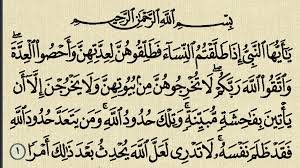 بِسْمِ ٱللَّهِ ٱلرَّحْمَٰنِ ٱلرَّحِيمِ
يَٰٓأَيُّهَا ٱلنَّبِىُّ إِذَا طَلَّقْتُمُ ٱلنِّسَآءَ فَطَلِّقُوهُنَّ لِعِدَّتِهِنَّ وَأَحْصُوا۟ ٱلْعِدَّةَ ۖ
وَٱتَّقُوا۟ ٱللَّهَ رَبَّكُمْ ۖ لَا تُخْرِجُوهُنَّ مِنۢ بُيُوتِهِنَّ وَلَا يَخْرُجْنَ إِلَّآ أَن
يَأْتِينَ بِفَٰحِشَةٍ مُّبَيِّنَةٍ ۚ وَتِلْكَ حُدُودُ ٱللَّهِ ۚ وَمَن يَتَعَدَّ حُدُودَ ٱللَّهِ
فَقَدْ ظَلَمَ نَفْسَهُۥ ۚ لَا تَدْرِى لَعَلَّ ٱللَّهَ يُحْدِثُ بَعْدَ ذَٰلِكَ أَمْرًا ١